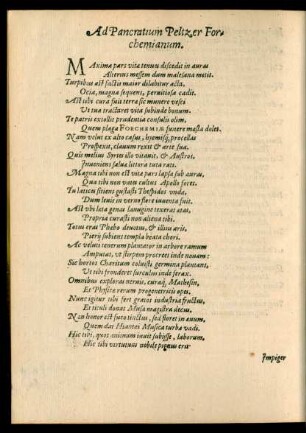 Ad Pancratium Peltzer For-
chemianum.
MAxima pars vitæ tenues discedit in auras
Alterius messem dum malesana metit.
Turpibus ast factis maior dilabitur acta,
Ocia, magna sequens, pernitiosa cadit.
Ast tibi cura fuit terræ sic munere vesci
Ut tua tractaret vita subinde bonum.
Te patris extollit prudentia consulis olim
Quem plaga FORCHEMIÆ funere mœsta dolet.
Nam velut ex alto casus, hyemesq́, procellas
Prospexit, clauum rexit & arte sua.
Quis melius Syrtes illo vitauit, & Austros.
Inaniens salua littora tuta ratis.
Magna tibi non est vitæ pars lapsa sub auras,
Qua tibi non votem cultus Apollo foret.
In latices sitiens gustasti Thespidos vndæ,
Dum leuis in verno flore iuuenta fuit.
Ast vbi læta genas lanugine texerat ætas,
Propria curasti non aliena tibi.
Totus eras Phœbo deuotus, & illius aris,
Pierÿ subiens templa beata chori.
Ac veluti tenerum plantatur in arbore ramum
Amputus, vt stirpem procreet inde nouam:
Sic hortos Charitum coluisti germina plantans,
Ut tibi fronderet surculus inde ferax.
Omnibus exploras neruis, curaq́, Mathesin,
Et Physices rerum progenerantis opus.
Nunc igitur tibi fert grates industria fructus,
Et tituli donat Musa magistra decus.
Non honor est sine tinctus, sed floret in ævum
Quem dat Hiantei Musica turba vadi.
Hic tibi, quos animum inuit subijsse, laborum,
Hic tibi virtutum nobile pignus erit
Impiger